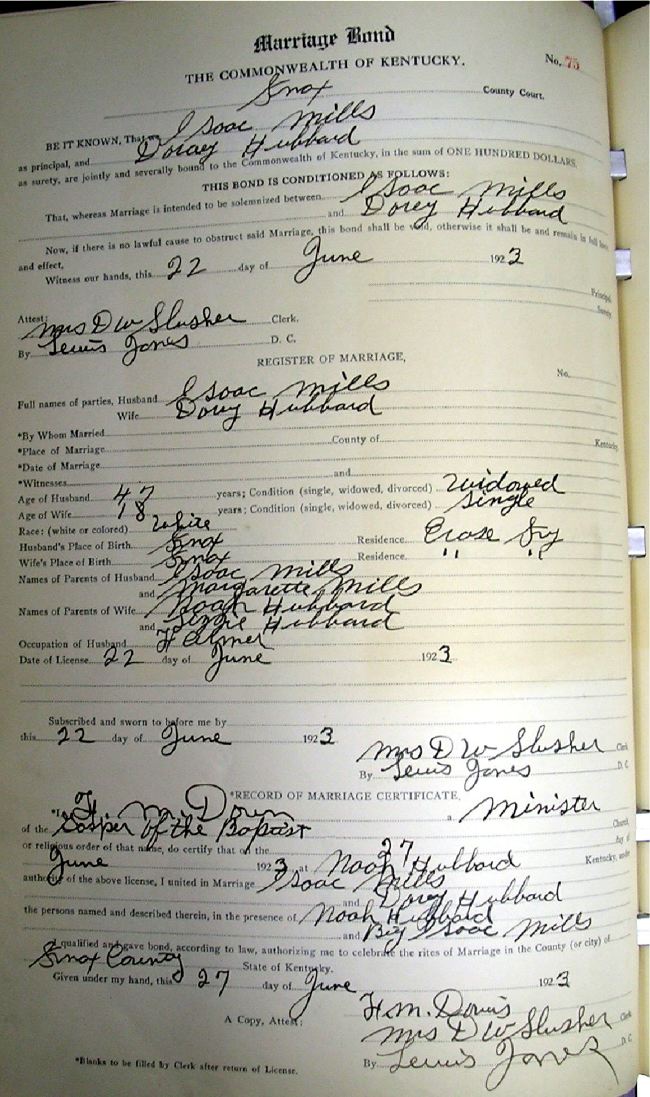 Marriage Bond
No. 75
THE COMMONWEALTH OF KENTUCKY.
Knox County Court.
BE IT KNOWN, That we Isaac Mills
as principal, and Doray Hubbard
as surety, are jointly and severally bound to the Commonwealth of Kentucky, in the sum of ONE HUNDRED DOLLARS.
THIS BOND IS CONDITIONED AS FOLLOWS:
That, whereas Marriage is intended to be solemnized between Isaac Mills
and Dorey Hubbard
Now, if there is no lawful cause to obstruct said Marriage, this bond shall be void, otherwise it shall be and remain in full force
and effect,
Witness our hands, this 22 day of June 1923
Principal
Surety
Attest:
Mrs D W Slusher Clerk.
By Lewis Jones D. C.
REGISTER OF MARRIAGE,
No.
Full names of parties, Husband Isaac Mills
Wife Dorey Hubbard
*By Whom Married
*Place of Marriage County of Kentucky
*Date of Marriage
*Witnesses and
Age of Husband 47 years; Condition (single, widowed, divorced) Widowed
Age of Wife 18 years; Condition (single, widowed, divorced) Single
Race: (white or colored) White
Husband's Place of Birth Knox Residence. Erose Ky
Wife's Place of Birth Knox Residence. " "
Names of Parents of Husband Isaac Mills
and Margarette Mills
Names of Parents of Wife Noah Hubbard
and Hubbard
Occupation of Husband Farmer
Date of License 22 day of June 1923
Subscribed and sworn to before me by
this 22 day of June 1923
Mrs D W Slusher Clerk
By Lewis Jones D. C.
*RECORD OF MARRIAGE CERTIFICATE.
*I M. a Minister
of the of the Baptist Church,
or religious order of that name, do certify that on the 27 day of
June 1923 at Noah Hubbard Kentucky, under
authority of the above license, I united in Marriage Isaac Mills
and Dorey Hubbard
the persons named and described therein, in the presence of Noah Hubbard
and Big Isaac Mills
qualified and gave bond, according to law, authorizing me to celebrate the rites of Marriage in the County (or city) of
Knox County State of Kentucky.
Given under my hand, this 27 day of June 1923
H.M. Davis
A Copy, Attest: Mrs D W Slusher Clerk
By Lewis Jones D. C.
*Blanks to be filled by Clerk after return of License.